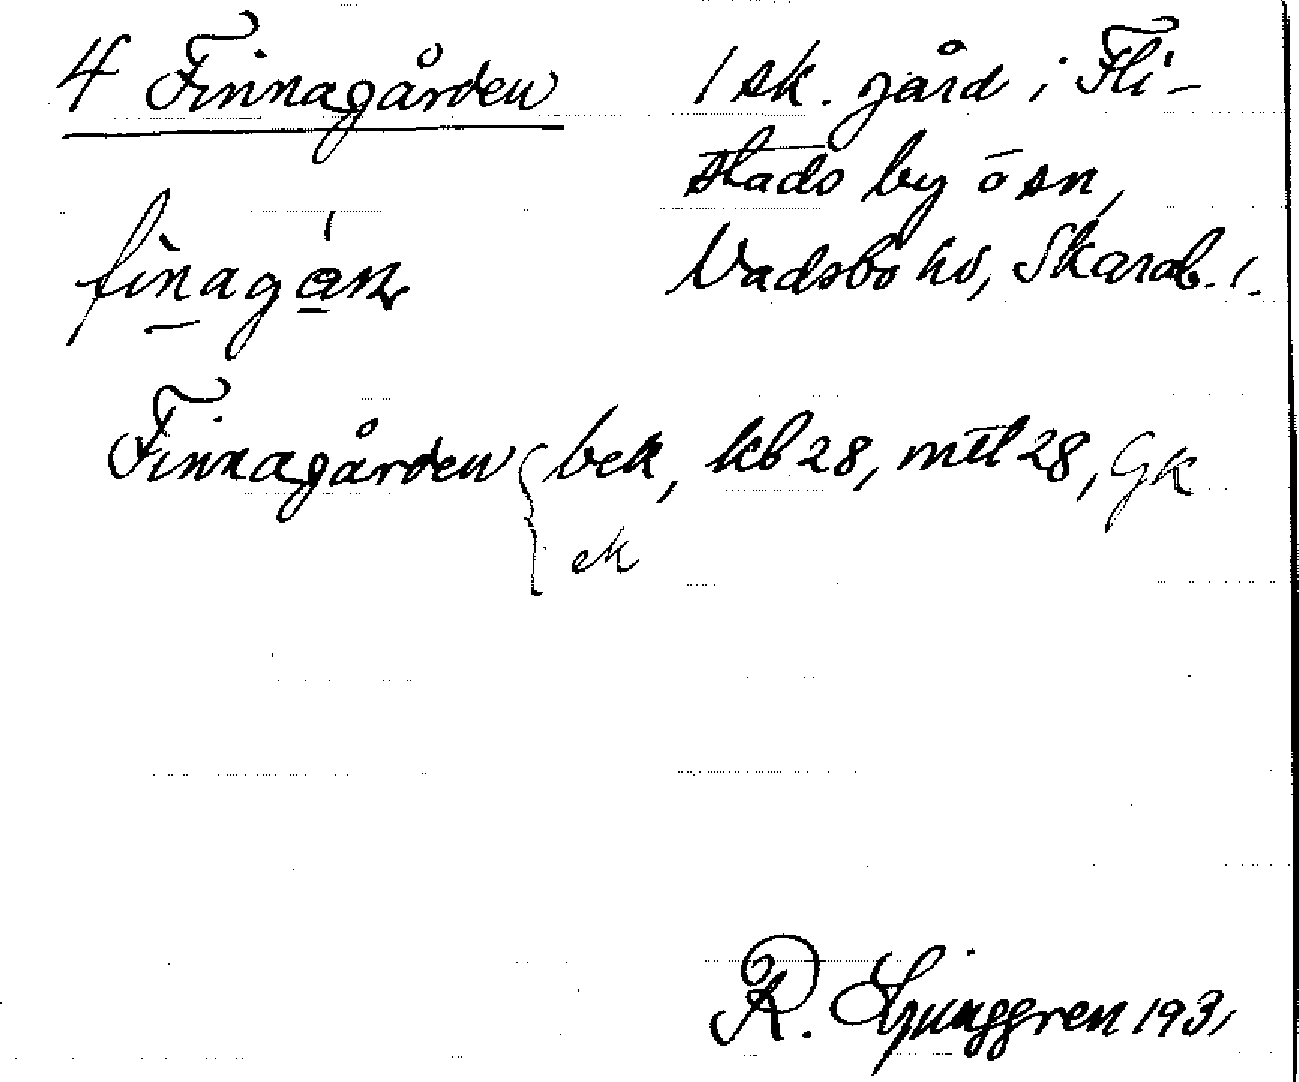 4 Finnagården
1 sk. gård i Fli-
stads by o sn,
Vadsbo hd, Skarab. l.
Finnagården { bek, kb 28, mtl 28, Gk
ek
R. Ljunggren 1931